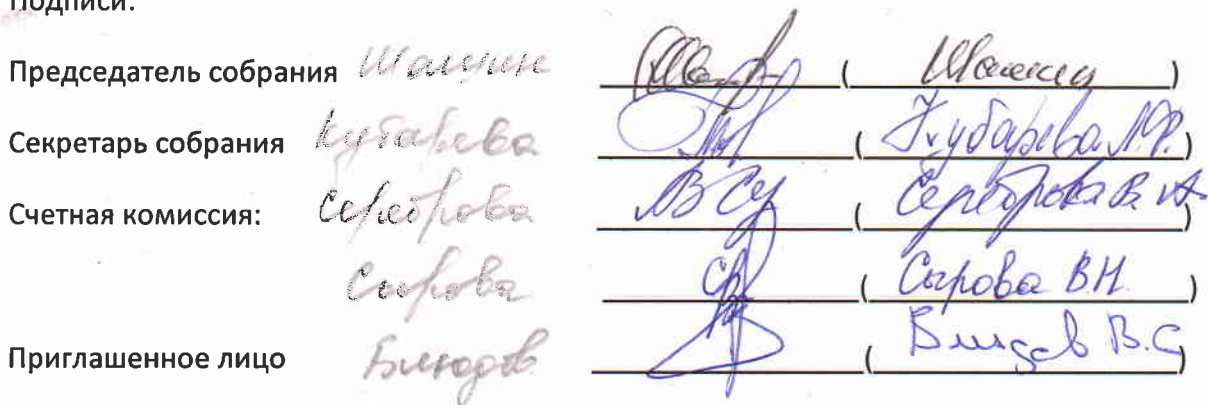 Подписи:
Председатель собрания Шашин ( Шашин )
Секретарь собрания Кубарева ( Кубарева Л.Ф. )
Счетная комиссия: Сереброва ( Сереброва В. А. )
Сырова ( Сырова В.Н. )
Приглашенное лицо Блюдов ( Блюдов В.С )